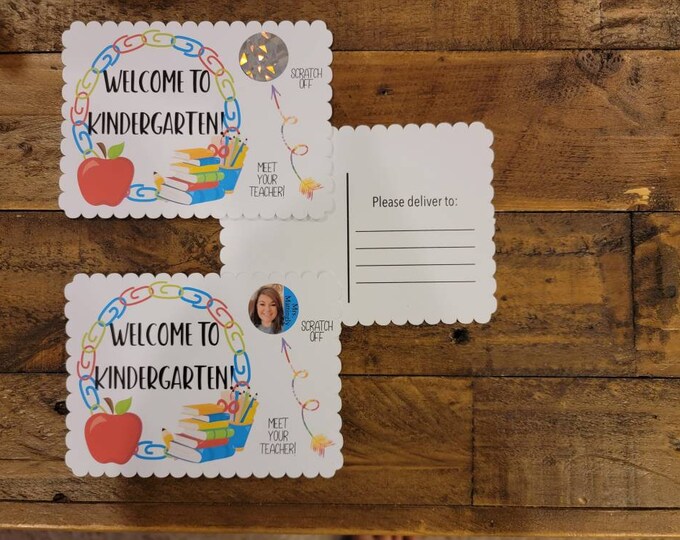 WELCOME TO
KINDERGARTEN!
SCRATCH
OFF
MEET
YOUR
TEACHER!
Please deliver to:
WELCOME TO
KINDERGARTEN!
SCRATCH
OFF
MEET
YOUR
TEACHER!